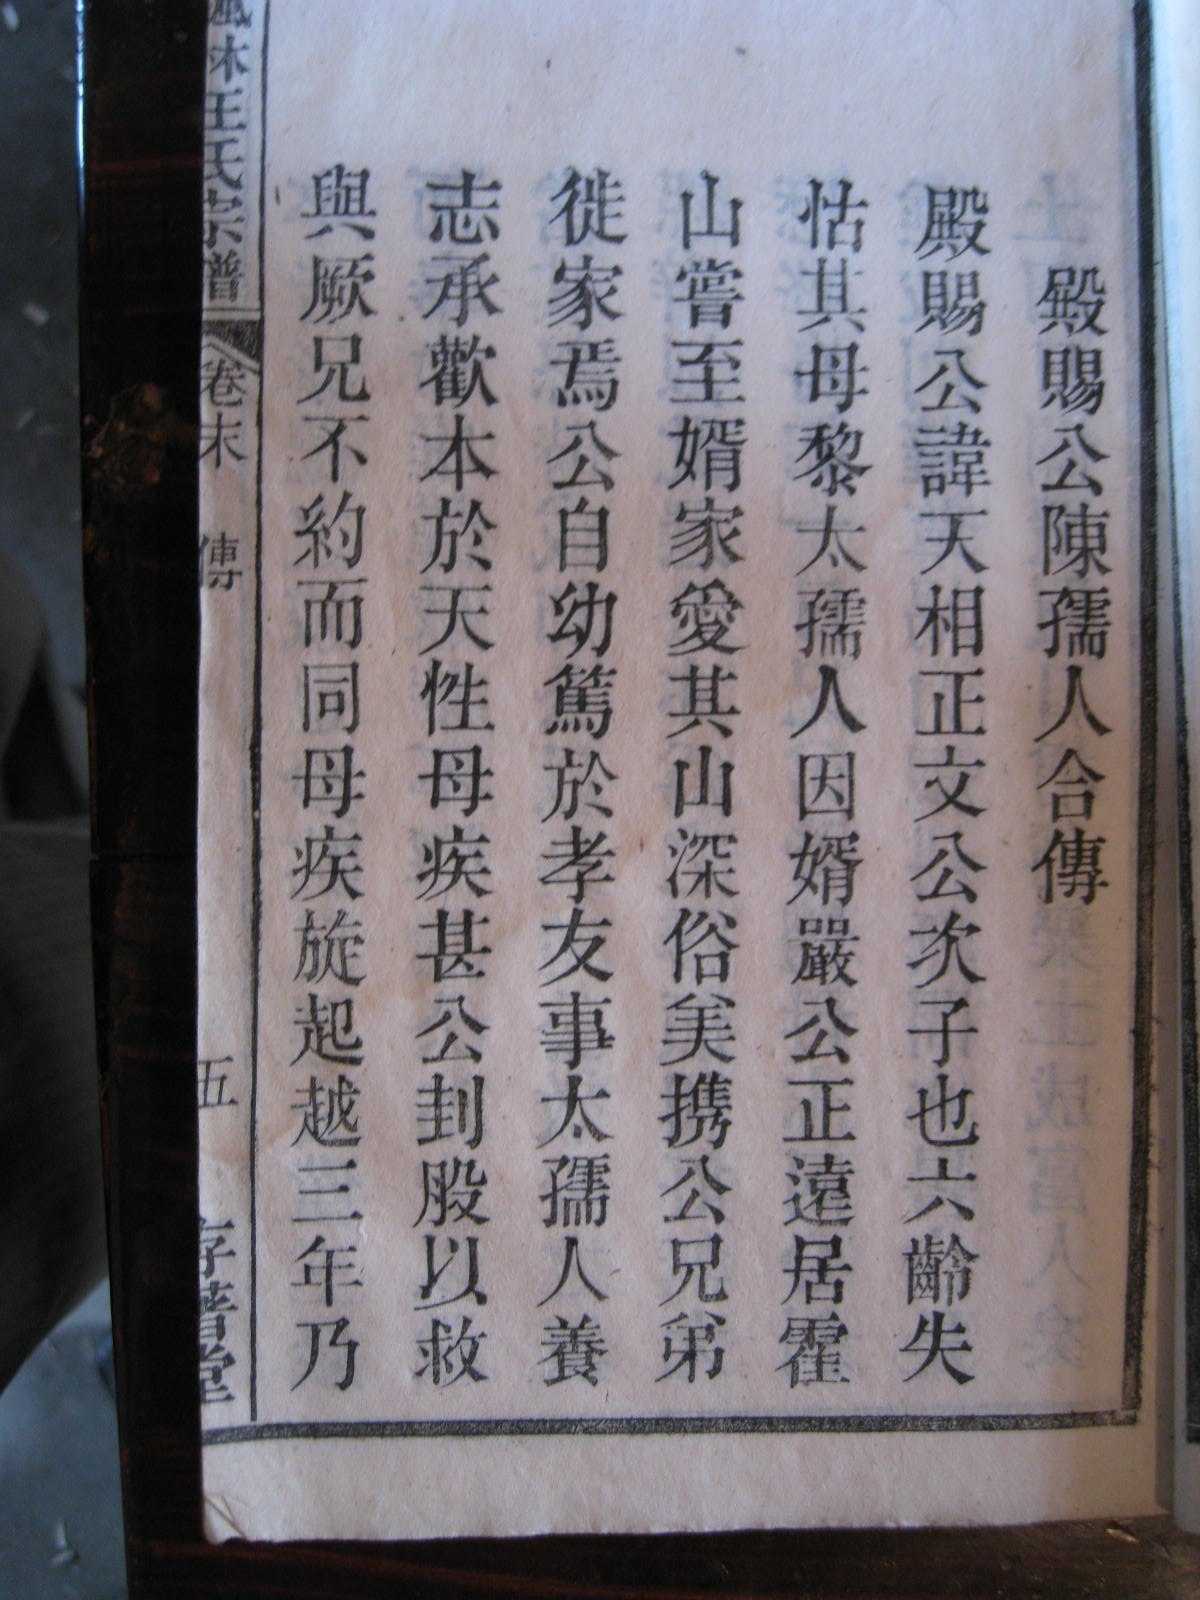 殿賜公陳孺人合傳
殿賜公諱天相正文公次子也六齡失
怙其母黎太孺人因婿嚴公正遠居霍
山嘗至婿家愛其山深俗美携公兄弟
徙家焉公自幼篤於孝友事太孺人養
志承歡本於天性母疾甚公刲股以救
與厥兄不約而同母疾旋起越三年乃
林王氏宗譜
卷末
傳
五
存著堂